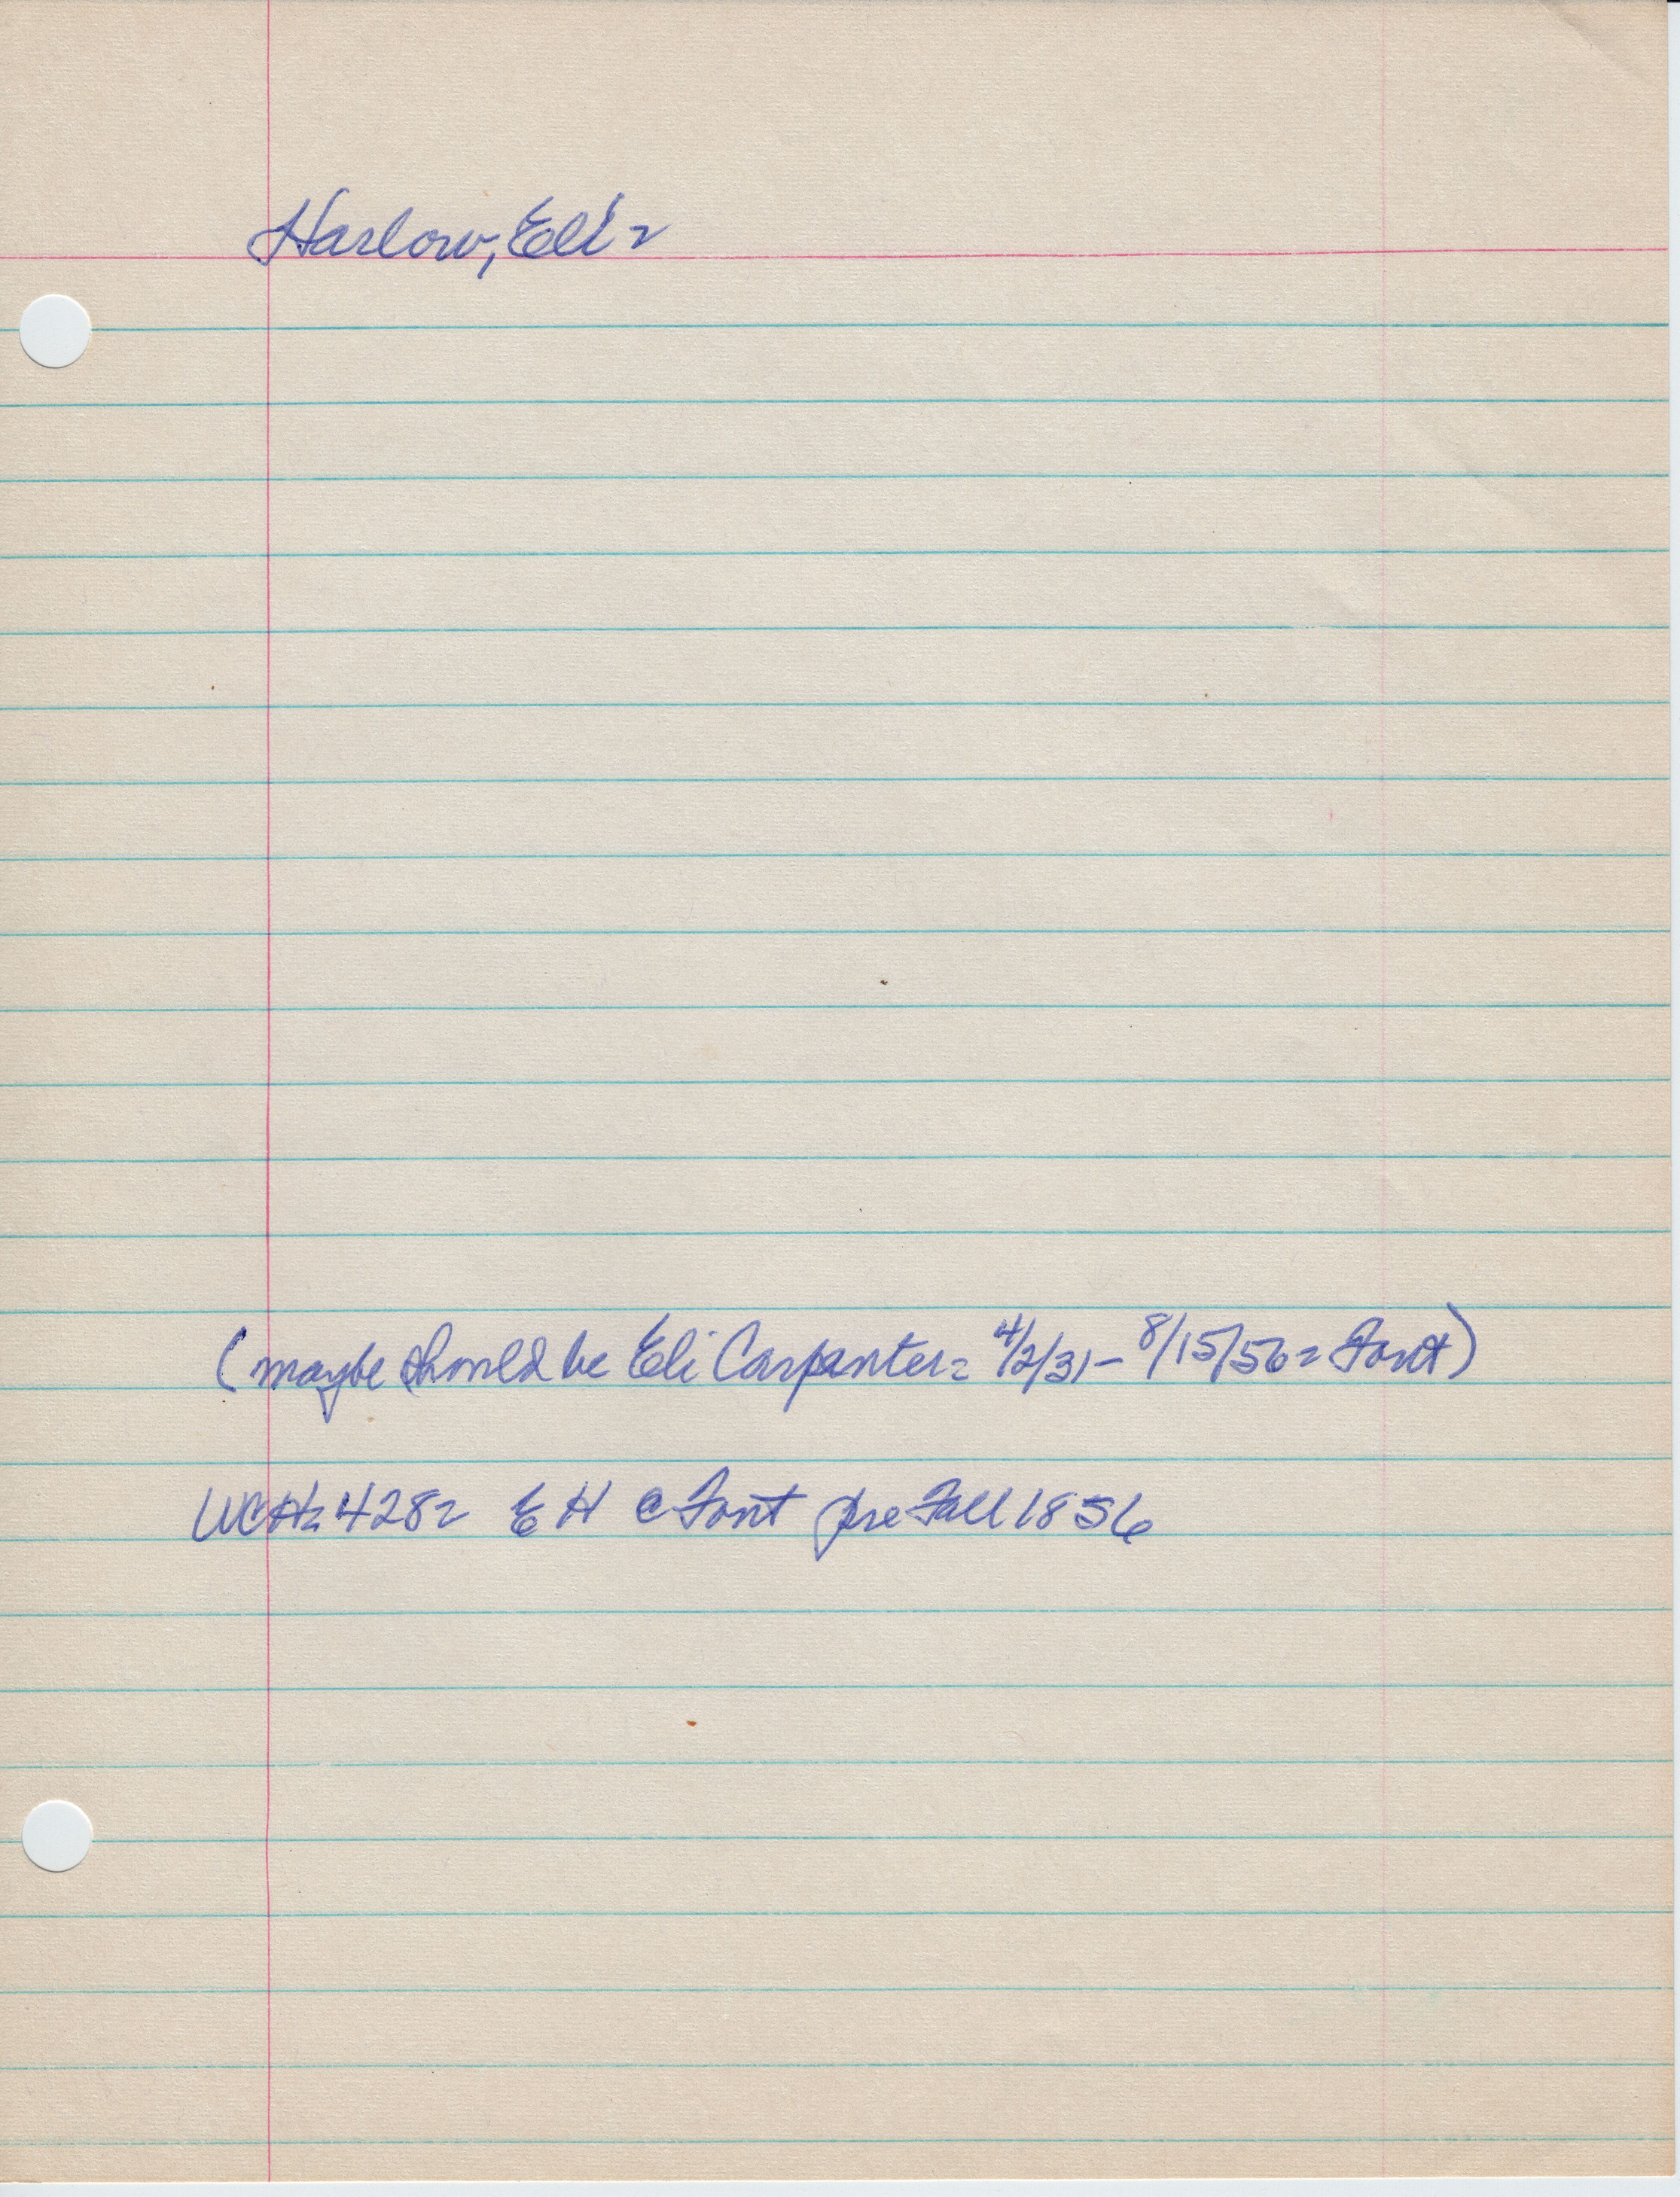 Harlow, Eli =
(maybe should be Eli Carpenter = 4/2/31 - 8/15/56 = Font)
WCH = 428 = E H @ Font pre Fall 1856